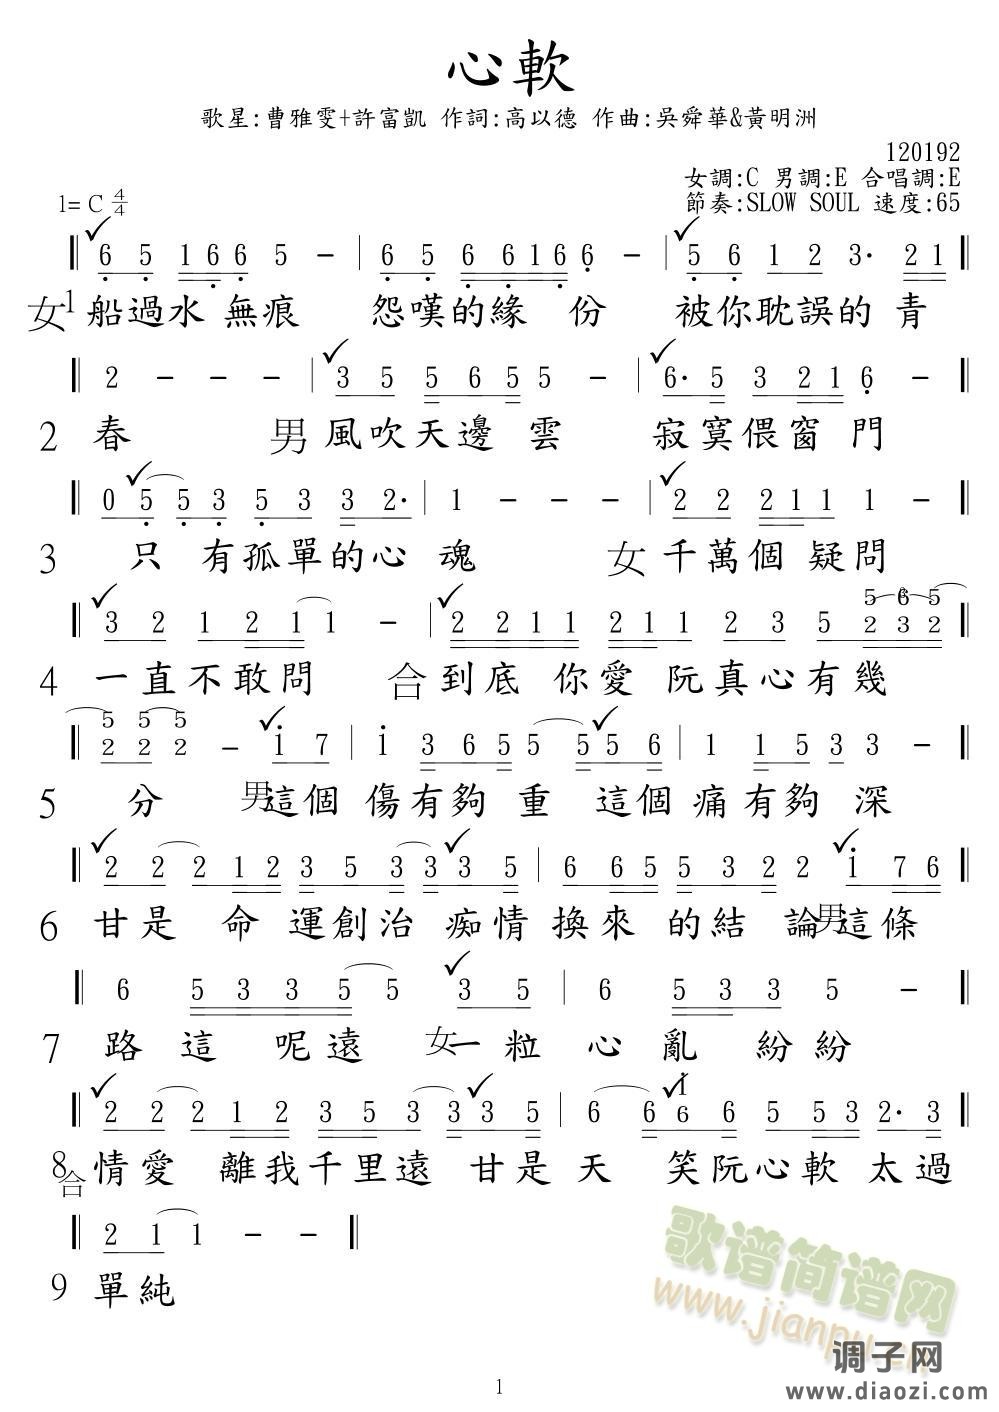 心軟
歌星:曹雅雯+許富凱 作詞:高以德 作曲:吳舜華&黃明洲
120192
女調:C 男調:E 合唱調:E
1= C 4/4 節奏:SLOW SOUL 速度:65
‖ 6 5 1 6 6 5 – | 6 5 6 6 1 6 6 – | 5 6 1 2 3· 2 1 ‖
女 1 船過水 無痕 怨嘆的緣 份 被你耽誤的 青
‖ 2 – – – | 3 5 5 6 5 5 – | 6· 5 3 2 1 6 – ‖
2 春 男 風吹天邊 雲 寂寞偎窗 門
‖ 0 5 5 3 5 3 3 2· | 1 – – – | 2 2 2 1 1 1 – ‖
3 只 有孤單的心 魂 女 千萬個 疑問
5 6 5
‖ 3 2 1 2 1 1 – | 2 2 1 1 2 1 1 2 3 5 2 3 2 ‖
4 一直不敢問 合 到底 你愛 阮真心有幾
5 5 5
‖ 2 2 2 – 1 7 | 1 3 6 5 5 5 5 6 | 1 1 5 3 3 – ‖
5 分 男 這個 傷有夠 重 這個 痛有夠 深
‖ 2 2 2 1 2 3 5 3 3 3 5 | 6 6 5 5 3 2 2 1 7 6 ‖
6 甘是 命 運創治 痴情 換來 的結 論 男 這條
‖ 6 5 3 3 5 5 3 5 | 6 5 3 3 5 – ‖
7 路 這 呢遠 女 一粒 心 亂 紛紛
1
‖ 2 2 2 1 2 3 5 3 3 3 5 | 6 6 6 6 5 5 3 2· 3 ‖
8 合 情愛 離我千里遠 甘是 天 笑阮心軟 太過
‖ 2 1 1 – – ‖
9 單純
歌谱简谱网
www.jianpu.cn
调子网
www.diaozi.com
1